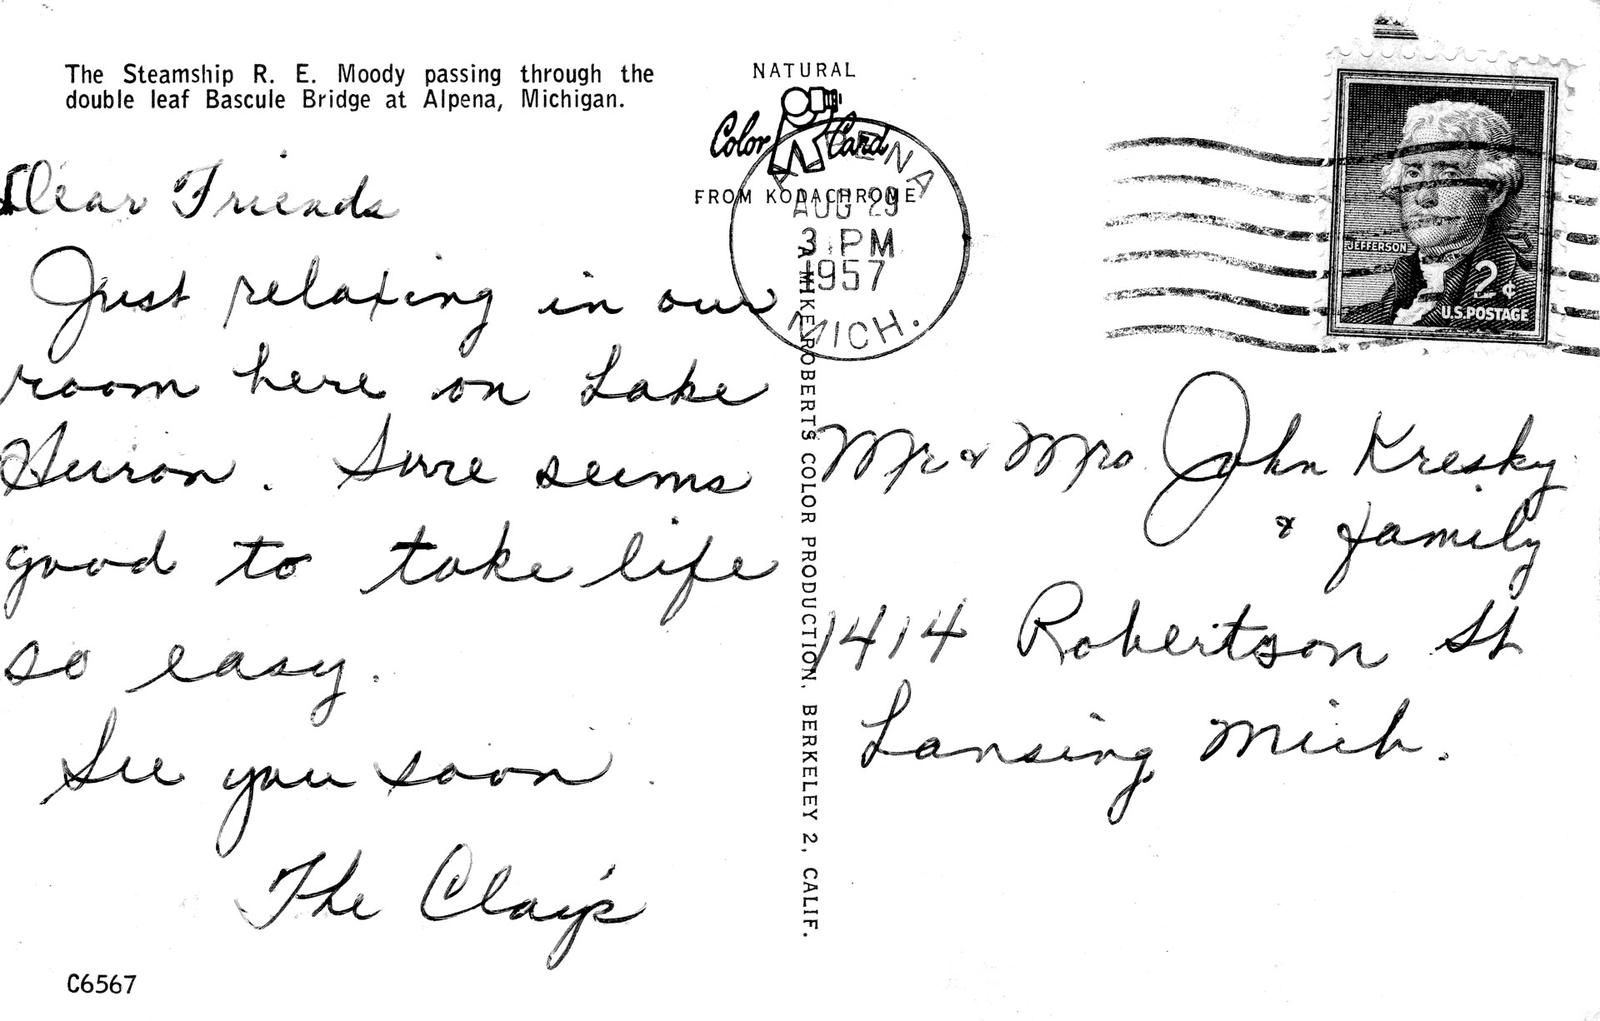 The Steamship R. E. Moody passing through the
double leaf Bascule Bridge at Alpena, Michigan.
Dear Friends
Just relaxing in our
room here on Lake
Huron. Sure seems
good to take life
so easy.
See you soon.
The Clay's
C6567
NATURAL
Color Card
FROM KODACHROME
A MIKE ROBERTS COLOR PRODUCTION, BERKELEY 2, CALIF.
ALPENA
AUG 29
3 PM
1957
MICH.
JEFFERSON
2¢
U.S. POSTAGE
Mr & Mrs John Kresky
& family
1414 Robertson St
Lansing Mich.